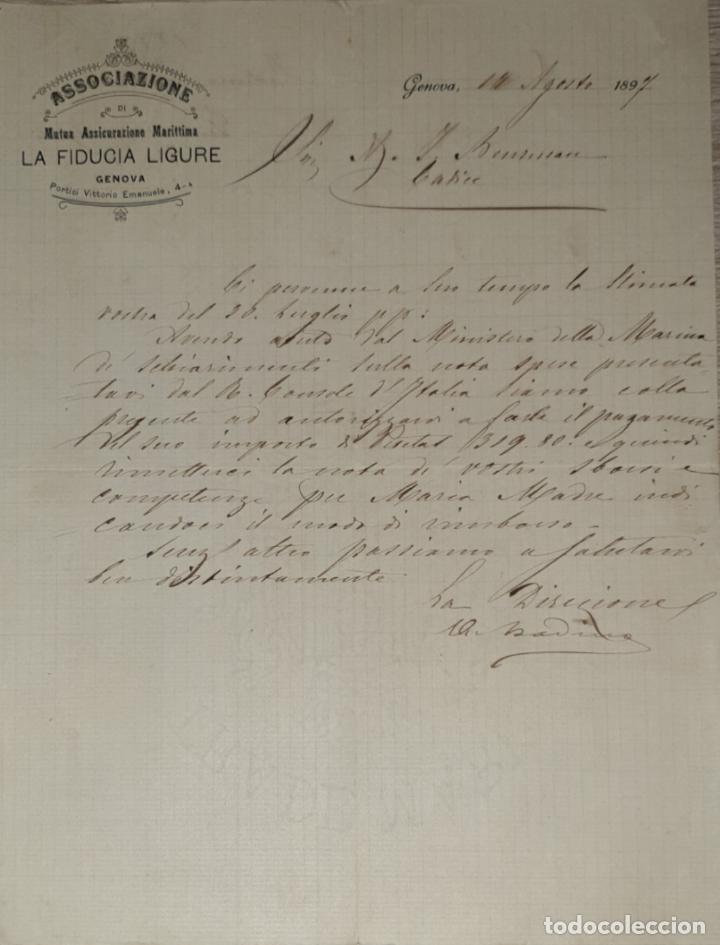 ASSOCIAZIONE
DI
Mutua Assicurazione Marittima
LA FIDUCIA LIGURE
GENOVA
Portici Vittorio Emanuele, 4-4
Genova, Agosto 1897
Cadice
Ci pervenne a suo tempo la Stimata
vostra del 20. Luglio p.p:
Avendo avuto dal Ministero della Marina
di schiarimenti sulla nota spese presenta
tavi dal R. Console d'Italia siamo colla
presente ad autorizzarvi a fare il pagamento
del suo importo di 1319.80. e quindi
rimetterci la nota di vostri sborsi e
competenze per Maria Madre indi
candoci il modo di rimborso.
Senz'altro passiamo a salutarvi
ben distintamente
La Direzione
todocoleccion
todocoleccion.net